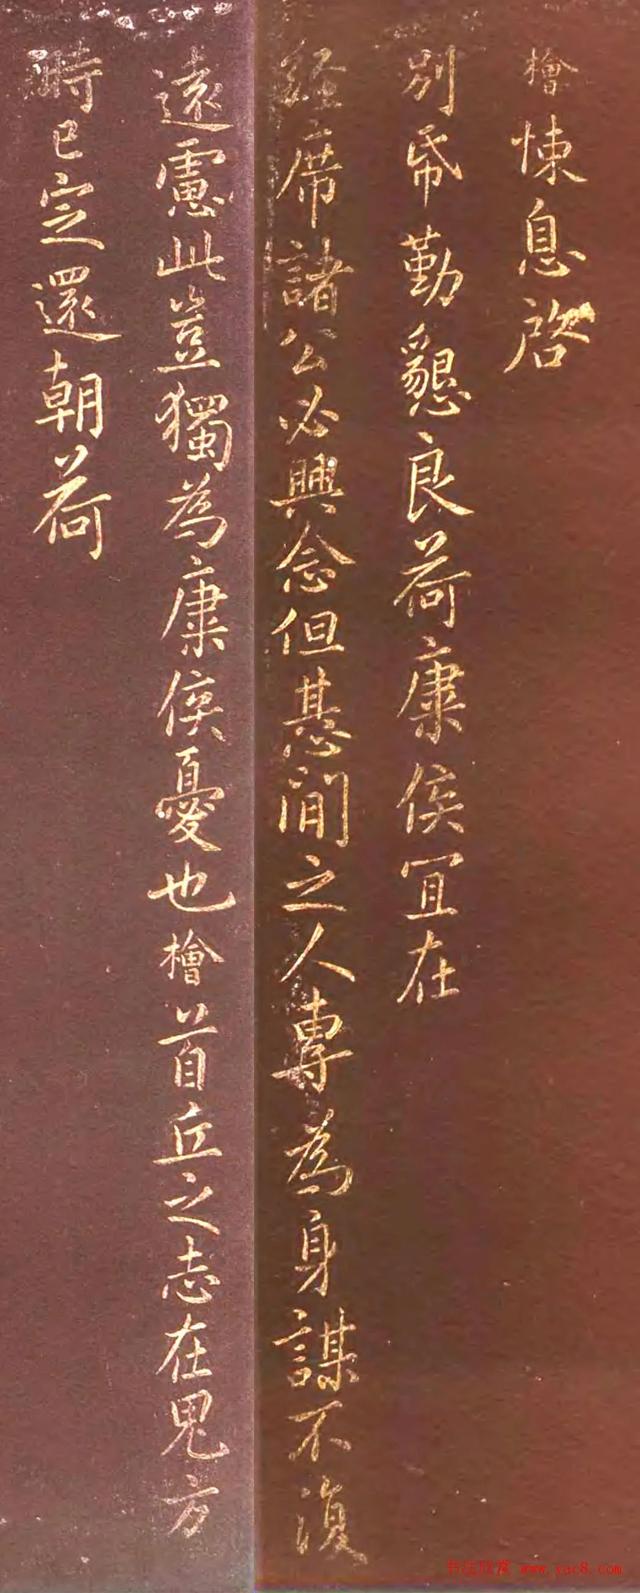 檜悚息啓
別帋勤懇良荷康侯冝在
經席諸公必興念但惎間之人專為身謀不復
遠慮此豈獨為康侯憂也檜首丘之志在鬼方
時已定還朝荷
书法欣赏 www.yac8.com